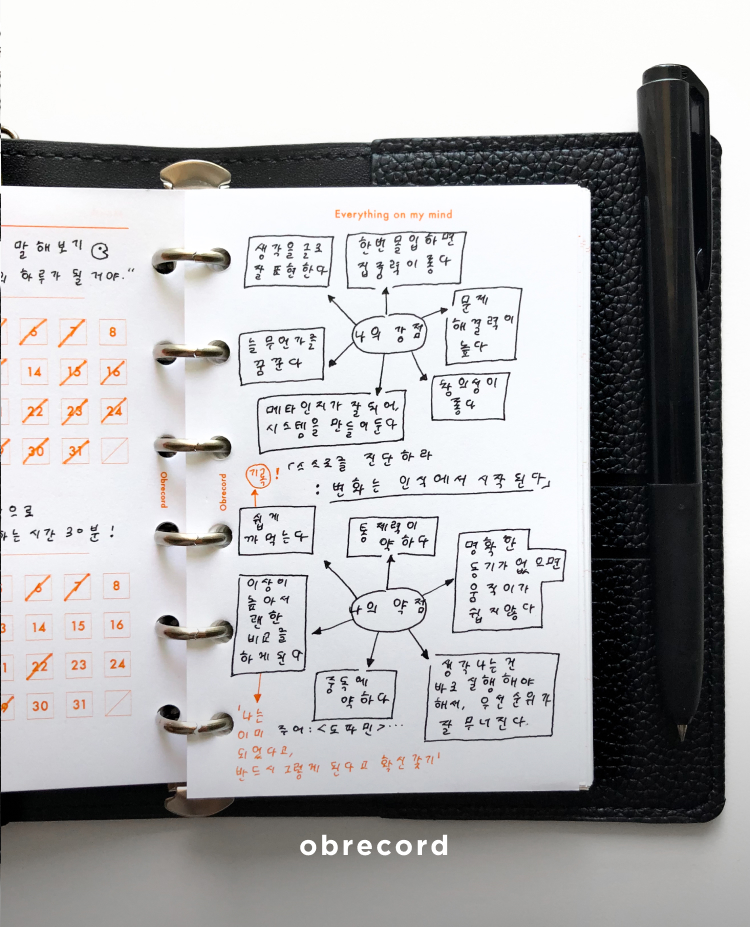 말 해보기
하루가 될 거야."
6 7 8
14 15 16
22 23 24
30 31
으로
하는 시간 30분!
6 7 8
14 15 16
22 23 24
30 31
Obrecord
Obrecord
Everything on my mind
생각을 글로
잘 표현한다
한번 몰입하면
집중력이 좋다
문제
해결력이
높다
나의 강점
늘 무언가를
꿈꾼다
창의성이
좋다
메타인지가 잘 되어,
시스템을 만들어둔다
기록!
「스스로를 진단하라
: 변화는 인식에서 시작된다」
쉽게
까먹는다
통제력이
약하다
명확한
동기가 없으면
움직이기
쉽지 않다
이상이
높아서
괜한
비교를
하게 된다
나의 약점
중독에
약하다
주어: <도파민>...
생각나는 건
바로 실행해야
해서, 우선순위가
잘 무너진다.
'나는
이미
되었다고,
반드시 그렇게 된다고 확신 갖기'
obrecord